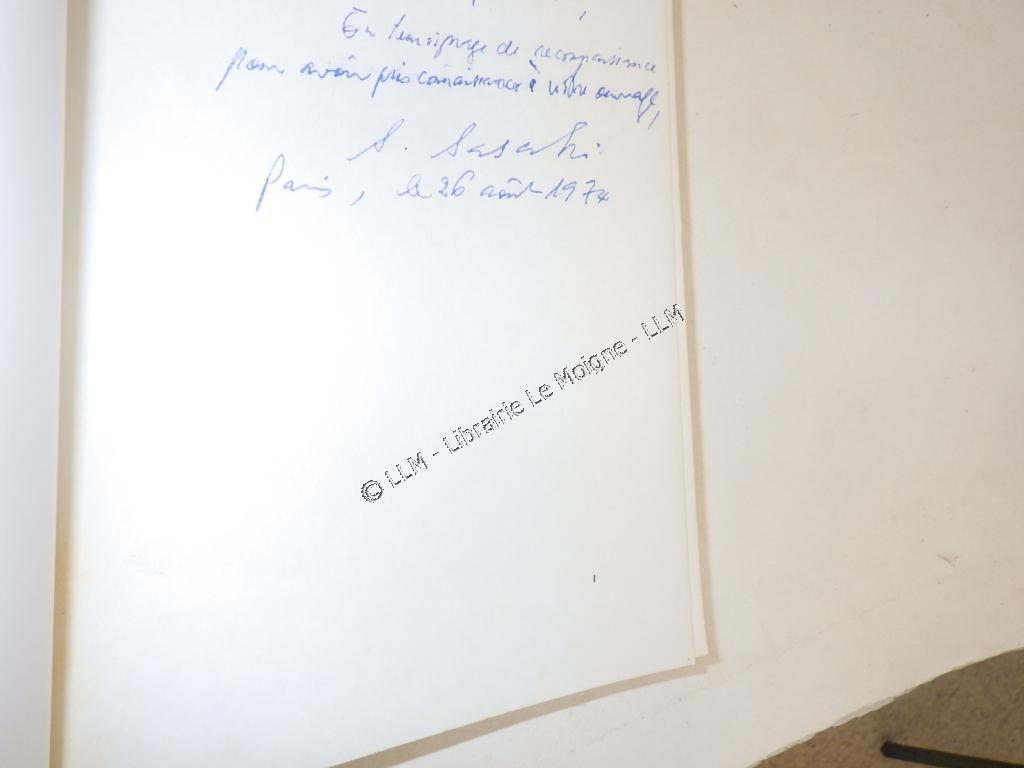 En temoignage de reconnaissance
pour avoir pris connaissance à votre ouvrage,
S. Sasaki
Paris, le 26 août 1974
© LLM - Librairie Le Moigne - LLM